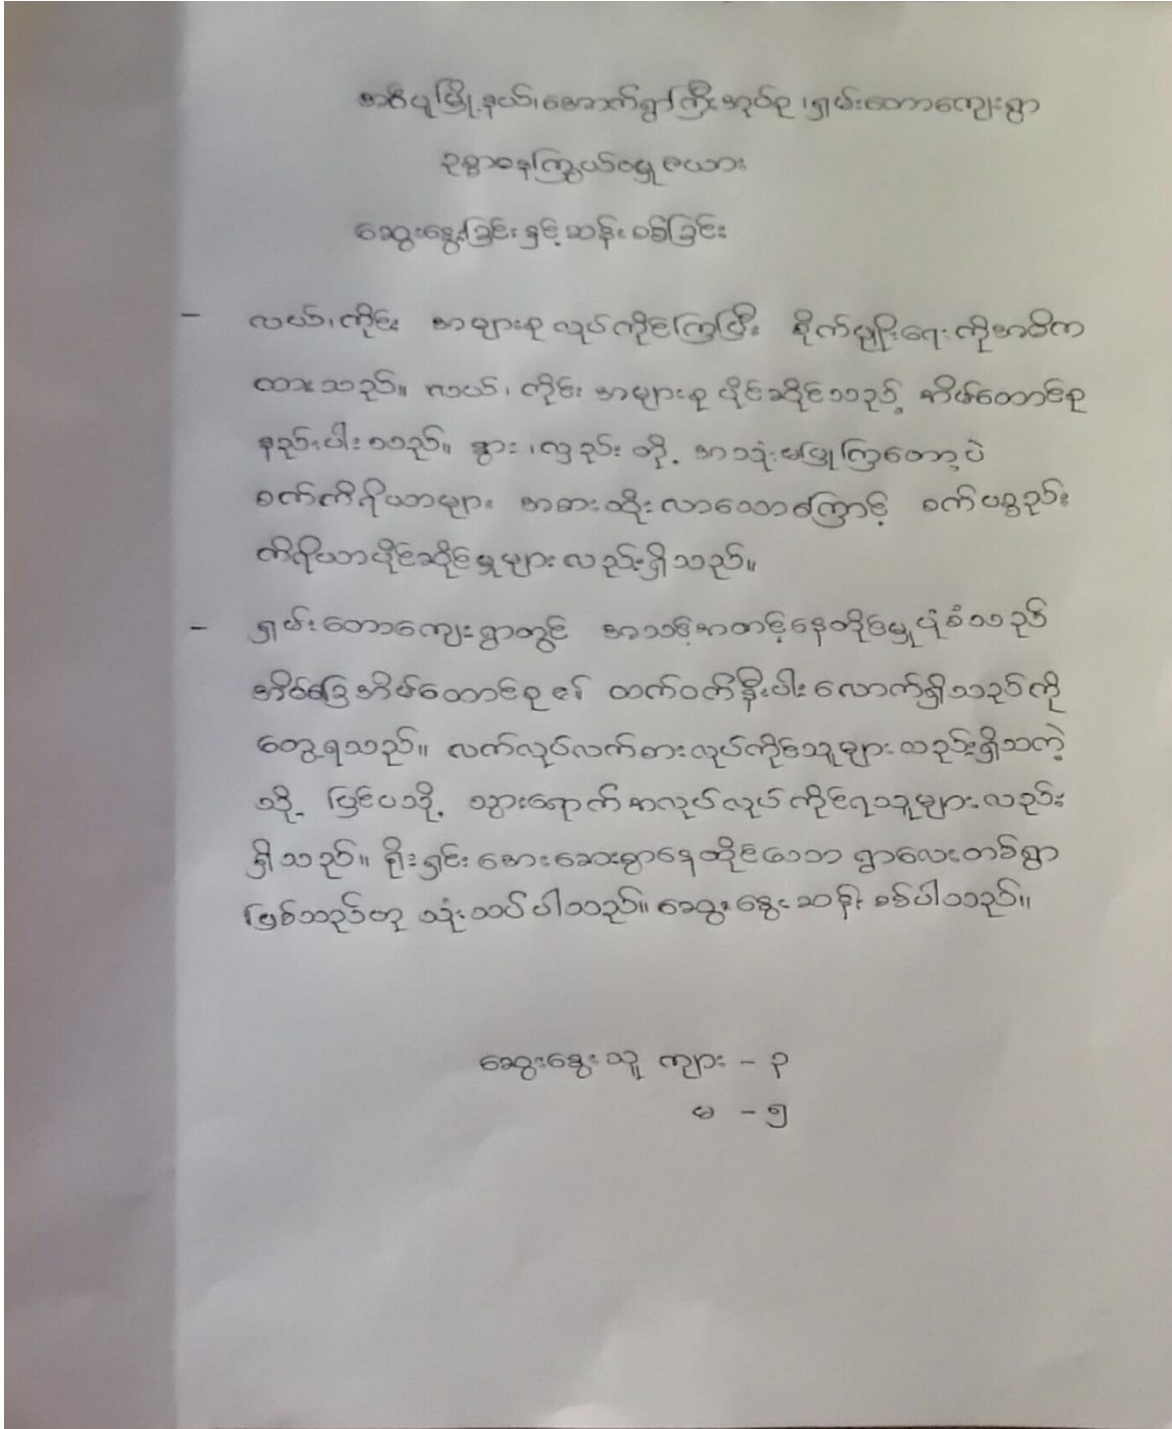 အစ်ပူမြို့နယ်၊အောက်ရွာကြီးအုပ်စု၊ရှမ်းတောကျေးရွာ
ဥစ္စာဓနကြွယ်ဝမှုဇယား
ဆွေးနွေးခြင်းနှင့်ဆန်းစစ်ခြင်း
- လယ်၊ကိုင်း အများစုလုပ်ကိုင်ကြပြီး စိုက်ပျိုးရေးကိုအဓိက
ထားသည်။ လယ်၊ကိုင်း အများစုပိုင်ဆိုင်သည့် အိမ်ထောင်စု
နည်းပါးသည်။ နွား၊လှည်းတို့ အသုံးမပြုကြတော့ပဲ
စက်ကိရိယာများ အစားထိုးလာသောကြောင့် စက်ပစ္စည်း
ကိရိယာပိုင်ဆိုင်မှုများလည်းရှိသည်။
- ရှမ်းတောကျေးရွာတွင် အသင့်အတင့်နေထိုင်မှုပုံစံသည်
အိမ်ခြေအိမ်ထောင်စု၏ ထက်ဝက်နီးပါးလောက်ရှိသည်ကို
တွေ့ရသည်။ လက်လုပ်လက်စားလုပ်ကိုင်သူများလည်းရှိသကဲ့
သို့ ပြင်ပသို့ သွားရောက်အလုပ်လုပ်ကိုင်ရသူများလည်း
ရှိသည်။ ရိုးရှင်းအေးဆေးစွာနေထိုင်သော ရွာလေးတစ်ရွာ
ဖြစ်သည်ဟု သုံးသပ်ပါသည်။ဆွေးနွေးဆန်းစစ်ပါသည်။
ဆွေးနွေးသူ ကျား - ၃
မ - ၅